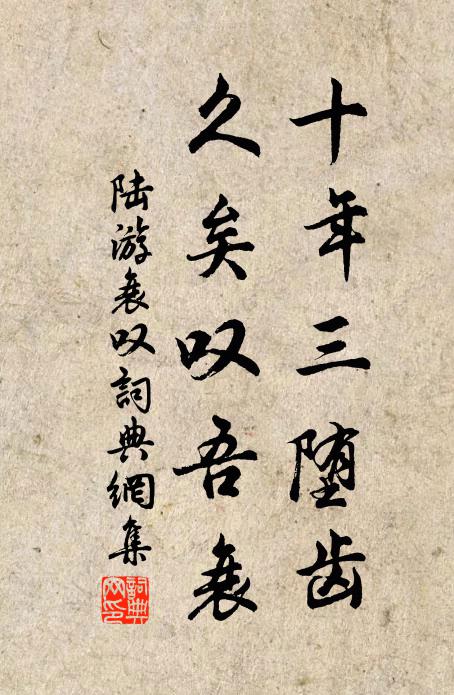 十年三堕齿
久矣叹吾衰
陆游衰叹詞典網集
詞典网印